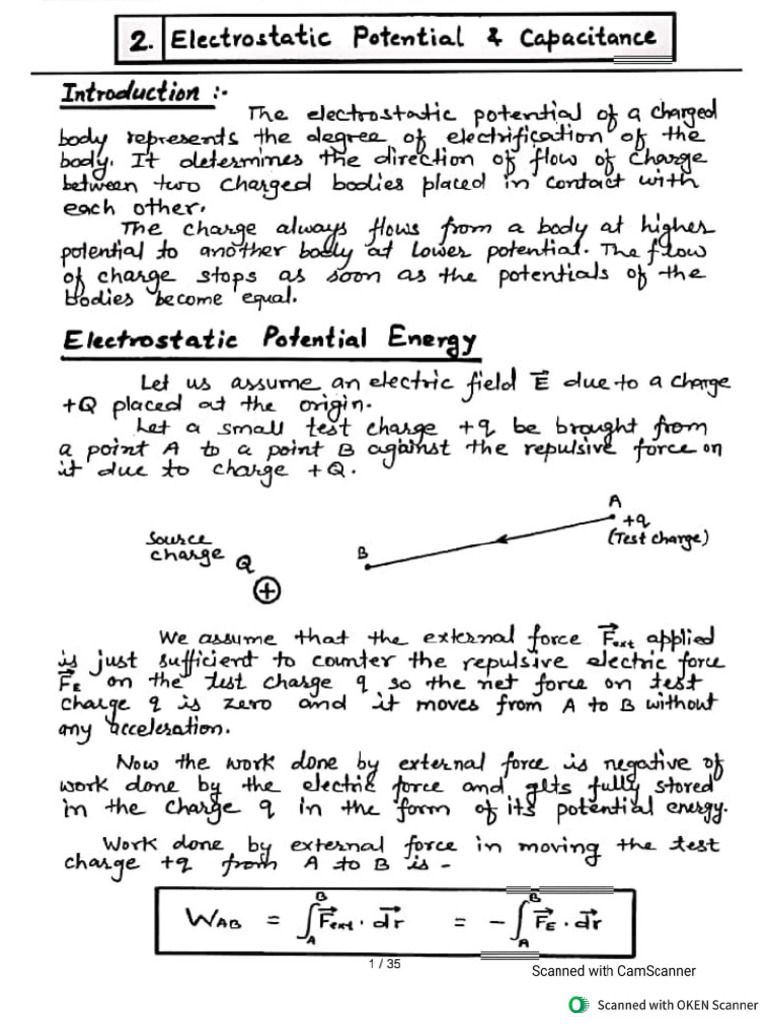 2. Electrostatic Potential & Capacitance
Introduction :-
The electrostatic potential of a charged
body represents the degree of electrification of the
body. It determines the direction of flow of charge
between two charged bodies placed in contact with
each other.
The charge always flows from a body at higher
potential to another body at lower potential. The flow
of charge stops as soon as the potentials of the
bodies become equal.
Electrostatic Potential Energy
Let us assume an electric field E⃗ due to a charge
+Q placed at the origin.
Let a small test charge +q be brought from
a point A to a point B against the repulsive force on
it due to charge +Q.
A
+q
(Test charge)
Source
charge Q
B
+
We assume that the external force F⃗ext applied
is just sufficient to counter the repulsive electric force
F⃗E on the test charge q so the net force on test
charge q is zero and it moves from A to B without
any acceleration.
Now the work done by external force is negative of
work done by the electric force and gets fully stored
in the charge q in the form of its potential energy.
Work done by external force in moving the test
charge +q from A to B is -
W_AB = ∫_A^B F⃗ext . dr⃗ = - ∫_A^B F⃗E . dr⃗
1 / 35
Scanned with CamScanner
Scanned with OKEN Scanner